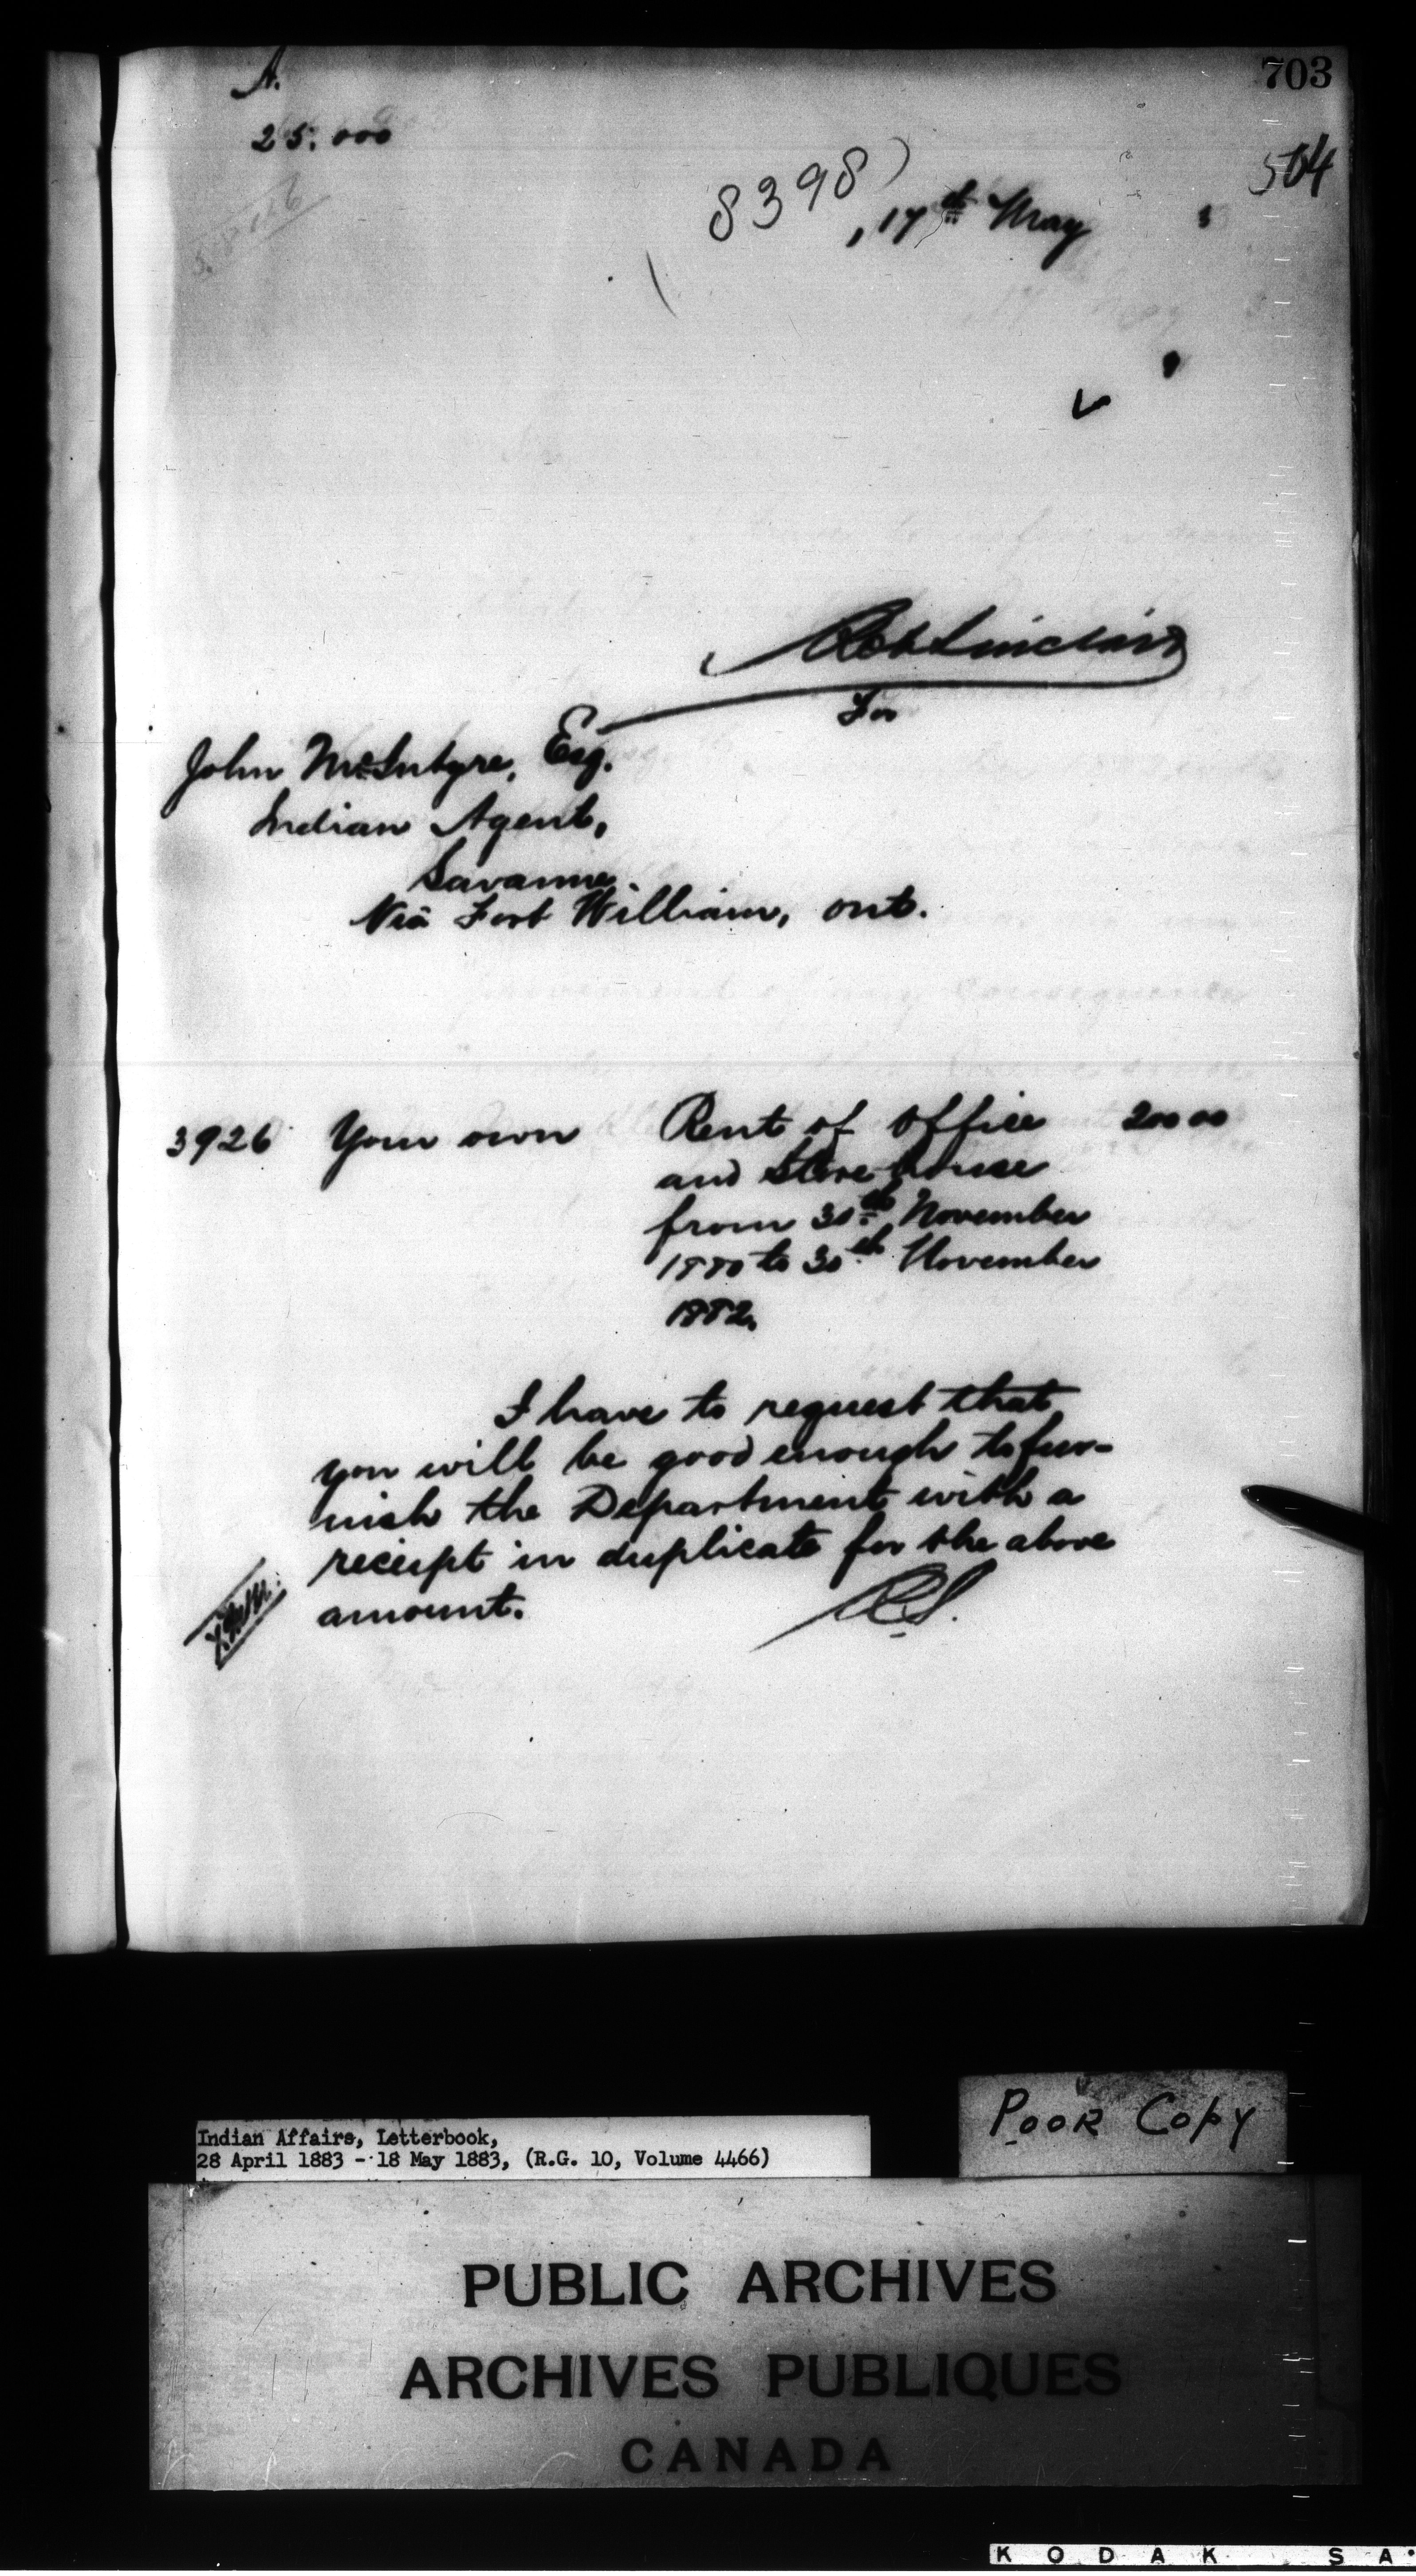 703
A.
25.000
504
8398
, 17th May 3
Robt Sinclair
For
John McIntyre, Esq.
Indian Agent,
Savanne
Via Fort William, Ont.
3926 Your own Rent of Office 200 00
and Store house
from 30th November
1880 to 30th November
1882.
I have to request that
you will be good enough to fur-
nish the Department with a
receipt in duplicate for the above
amount.
R.S.
POOR COPY
Indian Affairs, Letterbook,
28 April 1883 - 18 May 1883, (R.G. 10, Volume 4466)
PUBLIC ARCHIVES
ARCHIVES PUBLIQUES
CANADA
KODAK SA